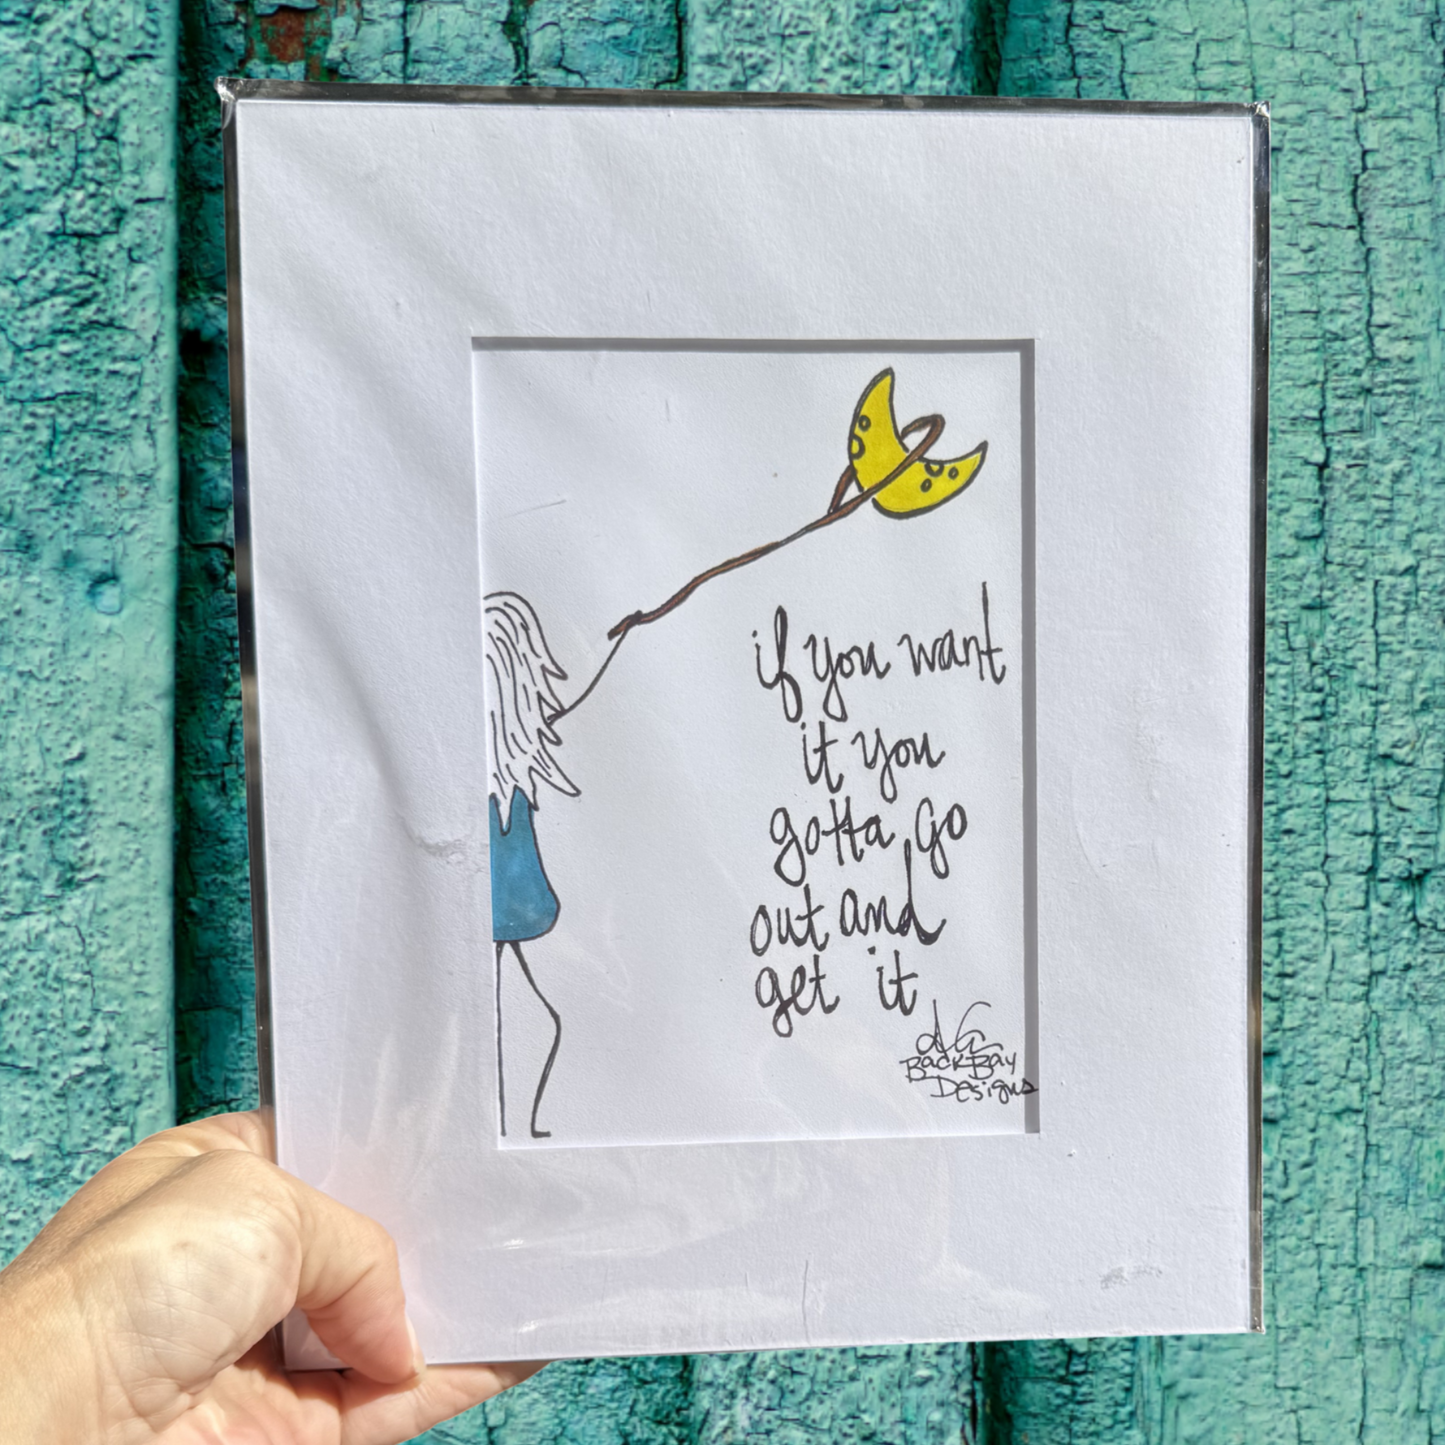 if you want
it you
gotta go
out and
get it
AG
BackBay
Designs